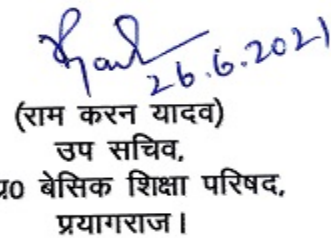 26.6.2021
(राम करन यादव)
उप सचिव,
प्र0 बेसिक शिक्षा परिषद,
प्रयागराज।